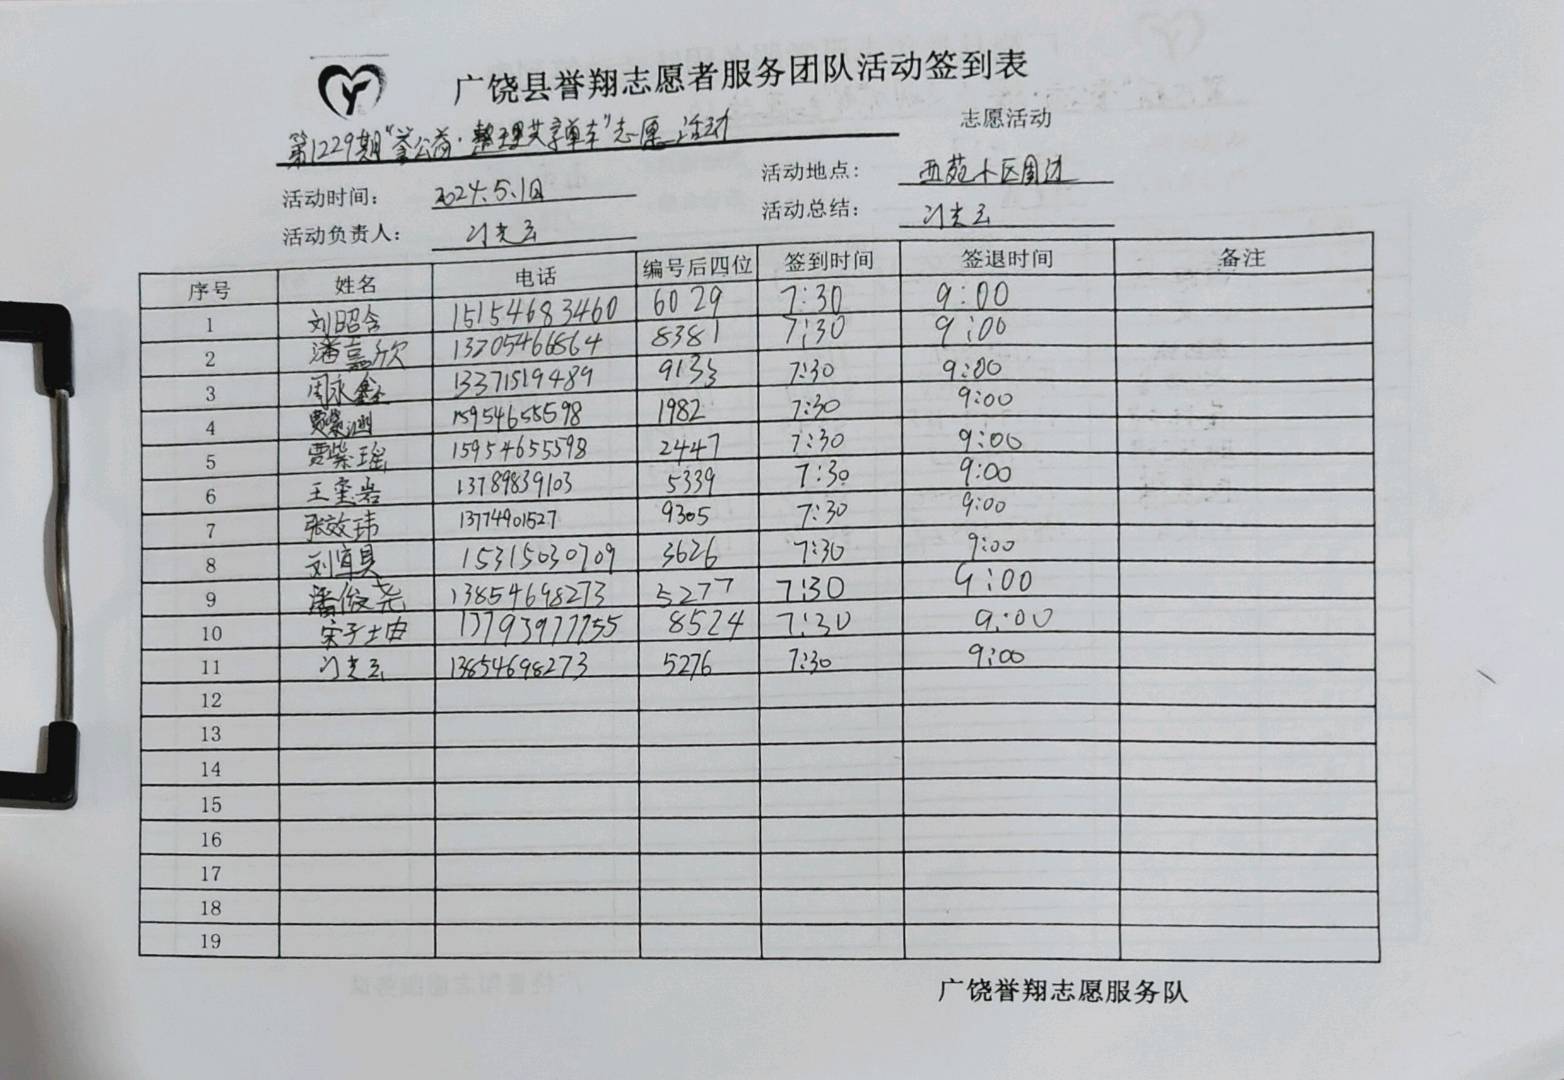 广饶县誉翔志愿者服务团队活动签到表
第1229期“誉公益·整理共享单车”志愿活动 志愿活动
活动时间： 2024.5.1日 活动地点： 西苑小区周边
活动负责人： 活动总结：
序号 姓名 电话 编号后四位 签到时间 签退时间 备注
1 刘昭含 15154683460 6029 7:30 9:00
2 潘嘉欣 13205466864 8381 7:30 9:00
3 周永鑫 13371519489 9133 7:30 9:00
4 15954655598 1982 7:30 9:00
5 贾紫瑶 15954655598 2447 7:30 9:00
6 王奎岩 13789839103 5339 7:30 9:00
7 张效玮 13774901527 9305 7:30 9:00
8 15315030709 3626 7:30 9:00
9 潘俊尧 13854698273 5277 7:30 9:00
10 宋子坤 17793977755 8524 7:30 9:00
11 13854698273 5276 7:30 9:00
12
13
14
15
16
17
18
19
广饶誉翔志愿服务队